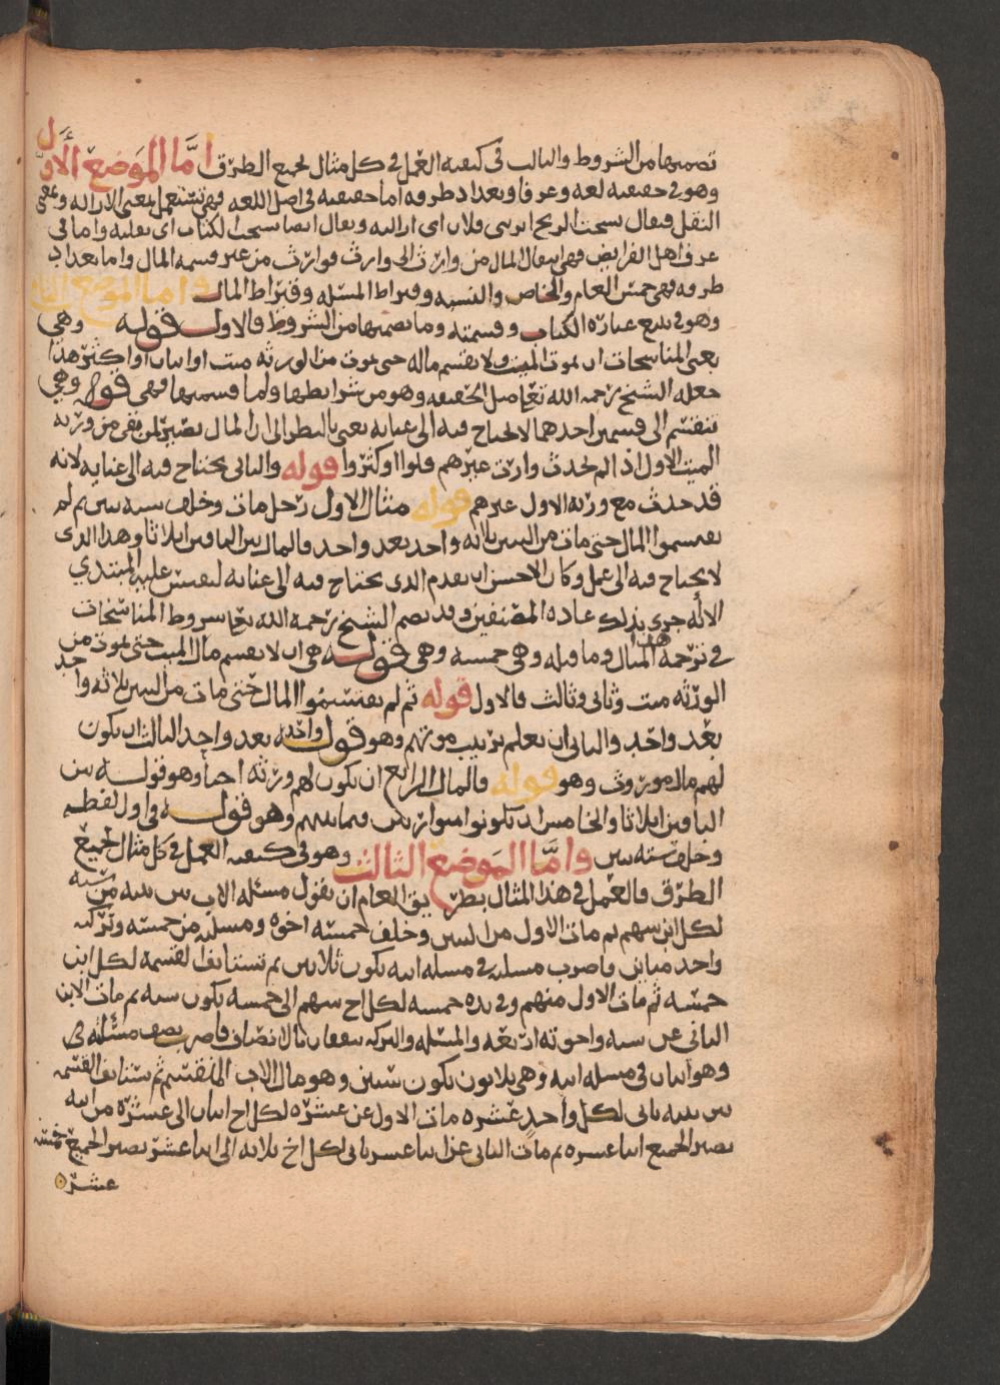 تضمنها من الشروط والثالث في كيفية العمل في كل مثال لجميع الطرق اما الموضع الاول
وهو في حقيقته لغة وعرفا وتعداد طرقه اما حقيقته في اصل اللغه فهي تستعمل بمعنى الازاله وبمعنى
النقل فيقال نسخت الريح اثر بني فلان اي ازالته ويقال ايضا نسخت الكتاب اي نقلته واما في
عرف اهل الفرايض فهي انتقال المال من وارث الى وارث فوارث من غير قسمة المال واما تعداد
طرقه فهي خمس العام والخاص والنسبه وقيراط المسئله وقيراط المال واما الموضع الثاني
وهو في تتبع عبارة الكتاب وقسمته وما تضمنها من الشروط فالاول قوله وهي
يعني المناسخات ان يموت الميت ولا يقسم ماله حتى يموت من الورثه ميت او اثنان او اكثر هذا
جعله الشيخ رحمه الله تعا اصل الحقيقه وهو من شرايطها ولما قسمتها فهي قوله وهي
تنقسم الى قسمين احدهما لا يحتاج فيه الى عنايه يعني بالنظر الى ان المال يصير لمن بقي من ورثة
الميت الاول اذ لم يحدث وارث غيرهم قلوا او كثروا قوله والثاني يحتاج فيه الى عنايه لانه
قد حدث مع ورثة الاول غيرهم قوله مثال الاول رجل مات وخلف ستة بنين ثم لم
يقسموا المال حتى مات من البنين ثلاثه واحد بعد واحد فالمال بين الباقين اثلاثا وهذا الذي
لا يحتاج فيه الى عمل وكان الاحسن ان يقدم الذي يحتاج فيه الى عنايه ليقيس عليه المبتدي
الا انه جرى بذلك عادة المصنفين وقد تضم الشيخ رحمه الله تعا شروط المناسخات
في ترجمة هذا المثال وما قبله وهي خمسه وهي قوله هي ان لا يقسم مال الميت حتى يموت من
الورثه ميت وثاني وثالث فالاول قوله ثم لم يقتسموا المال حتى مات من البنين ثلاثه واحد
بعد واحد والثاني ان يعلم ترتيب موتهم وهو قوله واحد بعد واحد الثالث ان يكون
لهم مال موروث وهو قوله فالمال الرابع ان يكون لهم ورثه احيا وهو قوله بين
الباقين اثلاثا والخامس ان يكونوا متوارثين فيما بينهم وهو قوله في اول لفظه
وخلف ستة بنين واما الموضع الثالث وهو في كيفية العمل في كل مثال لجميع
الطرق فالعمل في هذا المثال بطريق العام ان تقول مسئلة الاب بين بنيه من سته
لكل ابن سهم ثم مات الاول من البنين وخلف خمسة اخوه ومسئلته من خمسه وتركته
واحد مباين فاضرب مسئلته في مسئلة ابيه يكون ثلاثين ثم تستانف القسمه لكل ابن
خمسه ثم مات الاول منهم وفي يده خمسه لكل اخ سهم الى خمسه يكون سته ثم مات الابن
الثاني عن سته واخوته اربعه والمسئله والتركه يتفقان بالانصاف فاضرب نصف مسئلته
وهو اثنان في مسئلة ابيه وهي ثلاثون يكون ستين وهو مال الاب المنقسم ثم تستانف القسمه
بين بنيه ياتي لكل واحد عشره مات الاول عن عشره لكل اخ اثنان الى عشره من ابيه
يصير الجميع اثنا عشره ثم مات الثاني عن اثنا عشر ياتي لكل اخ ثلاثه الى اثنا عشر يصير الجميع خمسة
عشر